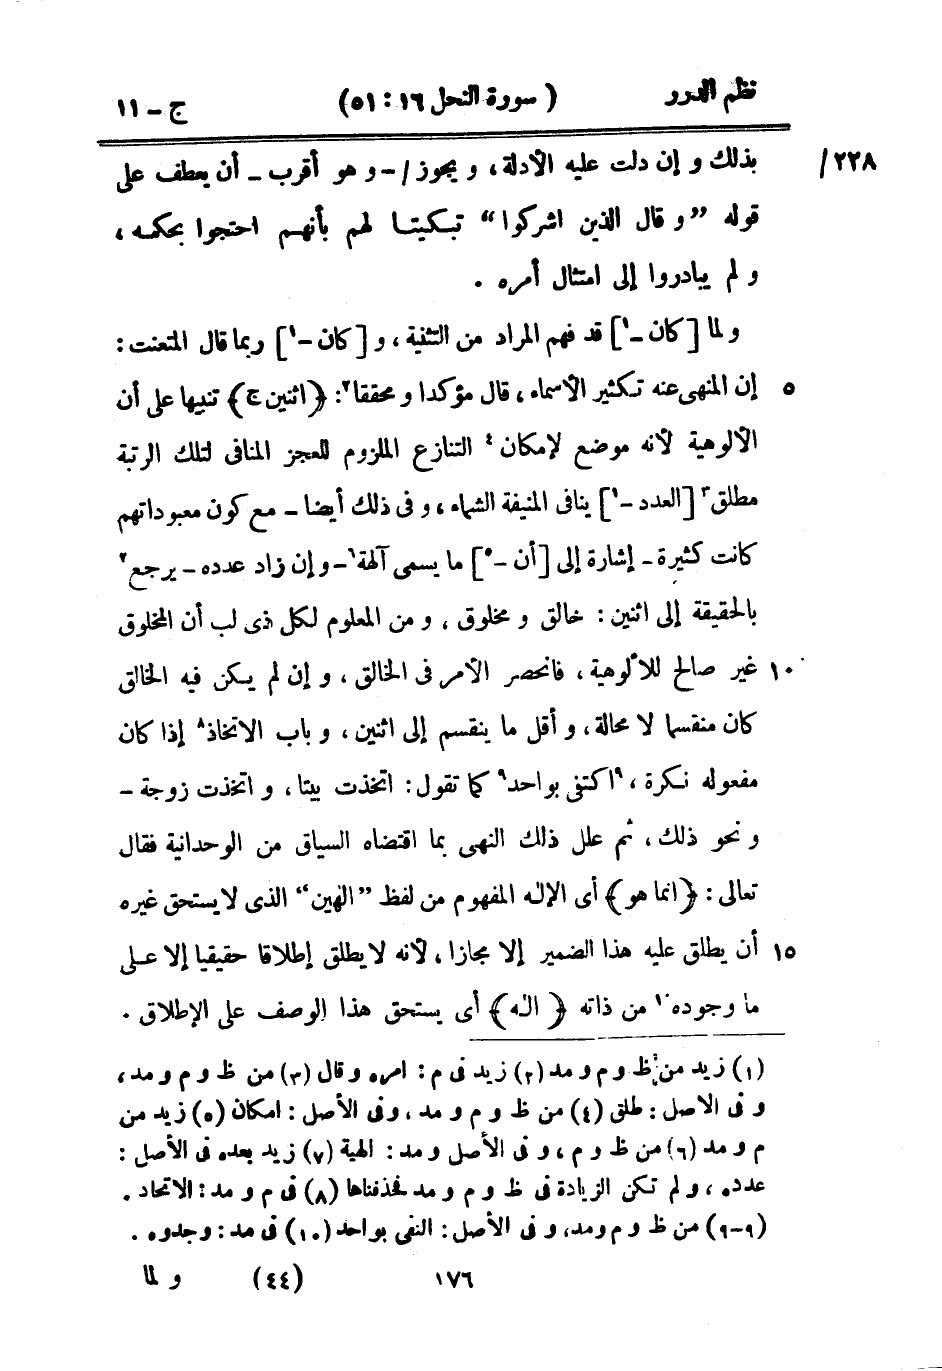 نظم الدرر ( سورة النحل ١٦ : ٥١) ج - ١١
٢٢٨/ بذلك و إن دلت عليه الأدلة، و يجوز /- و هو أقرب - أن يعطف على
قوله ”و قال الذين اشركوا“ تبكيتا لهم بأنهم احتجوا بحكمه،
و لم يبادروا إلى امتثال أمره .
و لما [كان -١] قد فهم المراد من التثنية، و [كان -١] ربما قال المتعنت:
٥ إن المنهى عنه تكثير الأسماء، قال مؤكدا و محققا٢: ﴿اثنين ج﴾ تنبيها على أن
الألوهية لأنه موضع لإمكان٤ التنازع الملزوم للعجز المنافى لتلك الرتبة
مطلق٣ [العدد -١] ينافى المنيفة الشماء، و فى ذلك أيضا - مع كون معبوداتهم
كانت كثيرة - إشارة إلى [أن -٥] ما يسمى آلهة٦ - و إن زاد عدده - يرجع٧
بالحقيقة إلى اثنين: خالق و مخلوق، و من المعلوم لكل ذى لب أن المخلوق
١٠ غير صالح للألوهية، فانحصر الأمر فى الخالق، و إن لم يكن فيه الخالق
كان منقسما لا محالة، و أقل ما ينقسم إلى اثنين، و باب الاتخاذ٨ إذا كان
مفعوله نكرة، ٩اكتفى بواحد٩ كما تقول: اتخذت بيتا، و اتخذت زوجة -
و نحو ذلك، ثم علل ذلك النهى بما اقتضاه السياق من الوحدانية فقال
تعالى: ﴿انما هو﴾ أى الإله المفهوم من لفظ ”الهين“ الذى لا يستحق غيره
١٥ أن يطلق عليه هذا الضمير إلا مجازا، لأنه لا يطلق إطلاقا حقيقيا إلا على
ما وجوده١٠ من ذاته ﴿ اله﴾ أى يستحق هذا الوصف على الإطلاق .
(١) زيد من ظ و م و مد (٢) زيد فى م: امره و قال (٣) من ظ و م و مد،
و فى الاصل: طلق (٤) من ظ و م و مد، و فى الأصل: امكان (٥) زيد من
م و مد (٦) من ظ و م، و فى الأصل و مد: الهية (٧) زيد بعده فى الأصل:
عدده، و لم تكن الزيادة فى ظ و م و مد فحذفناها (٨) فى م و مد: الاتحاد .
(٩-٩) من ظ و م و مد، و فى الأصل: النفى بواحد (١٠) فى مد: وجدوه .
١٧٦ (٤٤) و لما